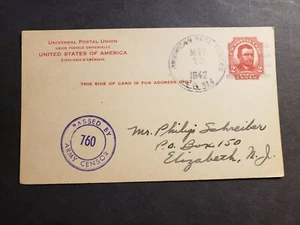 UNIVERSAL POSTAL UNION
UNION POSTALE UNIVERSELLE
UNITED STATES OF AMERICA
ÉTATS-UNIS D'AMÉRIQUE
THIS SIDE OF CARD IS FOR ADDRESS ONLY
AMERICAN BASE
MAY
1942
PASSED BY
760
ARMY CENSOR
Mr. Philip Schreiber
P.O. Box 150
Elizabeth, N.J.